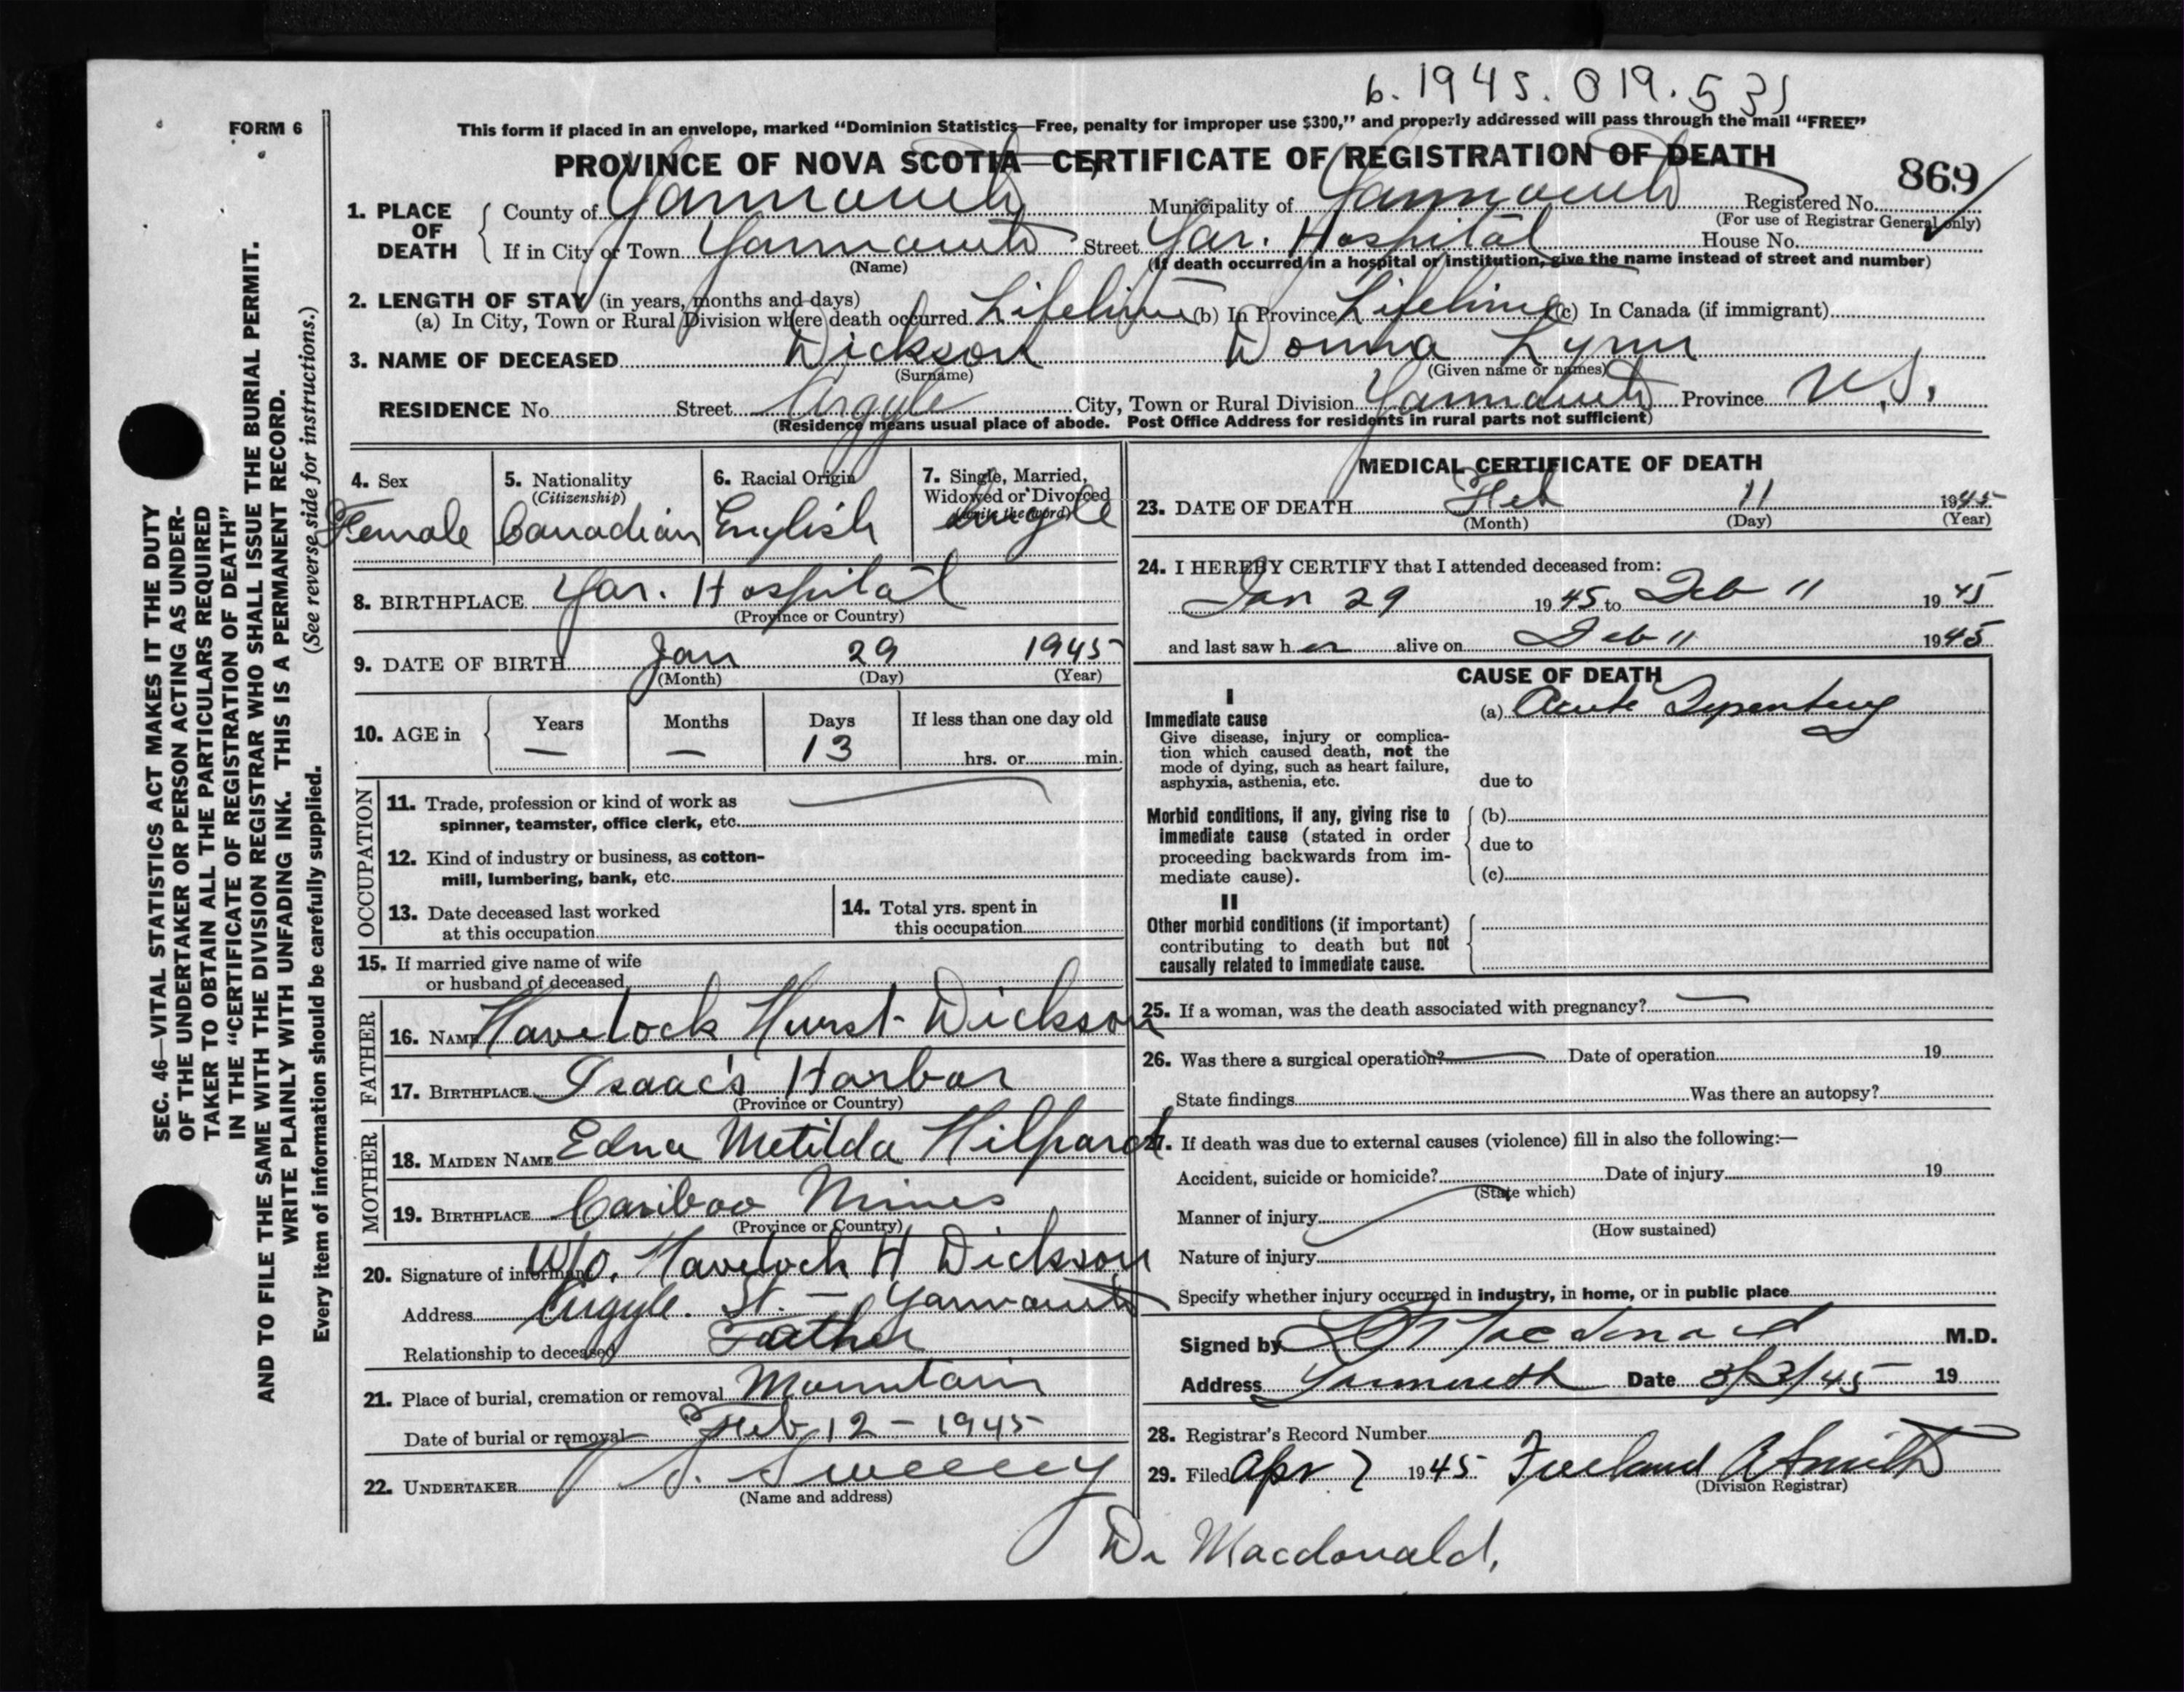 b. 1945. 019. 531
FORM 6
This form if placed in an envelope, marked "Dominion Statistics—Free, penalty for improper use $300," and properly addressed will pass through the mail "FREE"
PROVINCE OF NOVA SCOTIA—CERTIFICATE OF REGISTRATION OF DEATH
869
1. PLACE OF DEATH County of Yarmouth Municipality of Yarmouth Registered No.
(For use of Registrar General only)
If in City or Town Yarmouth Street Yar. Hospital House No.
(Name) (If death occurred in a hospital or institution, give the name instead of street and number)
2. LENGTH OF STAY (in years, months and days)
(a) In City, Town or Rural Division where death occurred Lifetime (b) In Province Lifetime (c) In Canada (if immigrant)
3. NAME OF DECEASED Dickson Donna Lynn
(Surname) (Given name or names)
RESIDENCE No. Street Argyle City, Town or Rural Division Yarmouth Province N.S.
(Residence means usual place of abode. Post Office Address for residents in rural parts not sufficient)
4. Sex Female
5. Nationality (Citizenship) Canadian
6. Racial Origin English
7. Single, Married, Widowed or Divorced (write the word) Single
8. BIRTHPLACE Yar. Hospital
(Province or Country)
9. DATE OF BIRTH Jan 29 1945
(Month) (Day) (Year)
10. AGE in Years — Months — Days 13 If less than one day old
hrs. or min.
OCCUPATION
11. Trade, profession or kind of work as
spinner, teamster, office clerk, etc.
12. Kind of industry or business, as cotton-
mill, lumbering, bank, etc.
13. Date deceased last worked
at this occupation
14. Total yrs. spent in
this occupation
15. If married give name of wife
or husband of deceased
FATHER
16. NAME Havelock Hurst Dickson
17. BIRTHPLACE Isaac's Harbor
(Province or Country)
MOTHER
18. MAIDEN NAME Edna Metilda Hilpard
19. BIRTHPLACE Cariboo Mines
(Province or Country)
20. Signature of informant W/O. Havelock H Dickson
Address Argyle. St. — Yarmouth
Relationship to deceased Father
21. Place of burial, cremation or removal Mountain
Date of burial or removal Feb 12 - 1945
22. UNDERTAKER Sweeney
(Name and address)
MEDICAL CERTIFICATE OF DEATH
23. DATE OF DEATH Feb 11 1945
(Month) (Day) (Year)
24. I HEREBY CERTIFY that I attended deceased from:
Jan 29 1945 to Feb 11 1945
and last saw her alive on Feb 11 1945
CAUSE OF DEATH
I
Immediate cause (a) Acute Dysentery
Give disease, injury or complica-
tion which caused death, not the
mode of dying, such as heart failure,
asphyxia, asthenia, etc. due to
Morbid conditions, if any, giving rise to (b)
immediate cause (stated in order
proceeding backwards from im- due to
mediate cause). (c)
II
Other morbid conditions (if important)
contributing to death but not
causally related to immediate cause.
25. If a woman, was the death associated with pregnancy? —
26. Was there a surgical operation? — Date of operation 19
State findings Was there an autopsy?
27. If death was due to external causes (violence) fill in also the following:—
Accident, suicide or homicide? Date of injury 19
(State which)
Manner of injury
(How sustained)
Nature of injury
Specify whether injury occurred in industry, in home, or in public place
Signed by Macdonald M.D.
Address Yarmouth Date 3/3/45 19
28. Registrar's Record Number
29. Filed Apr 7 1945 Freeland A Smith
(Division Registrar)
Dr Macdonald,
SEC. 46—VITAL STATISTICS ACT MAKES IT THE DUTY
OF THE UNDERTAKER OR PERSON ACTING AS UNDER-
TAKER TO OBTAIN ALL THE PARTICULARS REQUIRED
IN THE "CERTIFICATE OF REGISTRATION OF DEATH"
AND TO FILE THE SAME WITH THE DIVISION REGISTRAR WHO SHALL ISSUE THE BURIAL PERMIT.
WRITE PLAINLY WITH UNFADING INK. THIS IS A PERMANENT RECORD.
Every item of information should be carefully supplied. (See reverse side for instructions.)